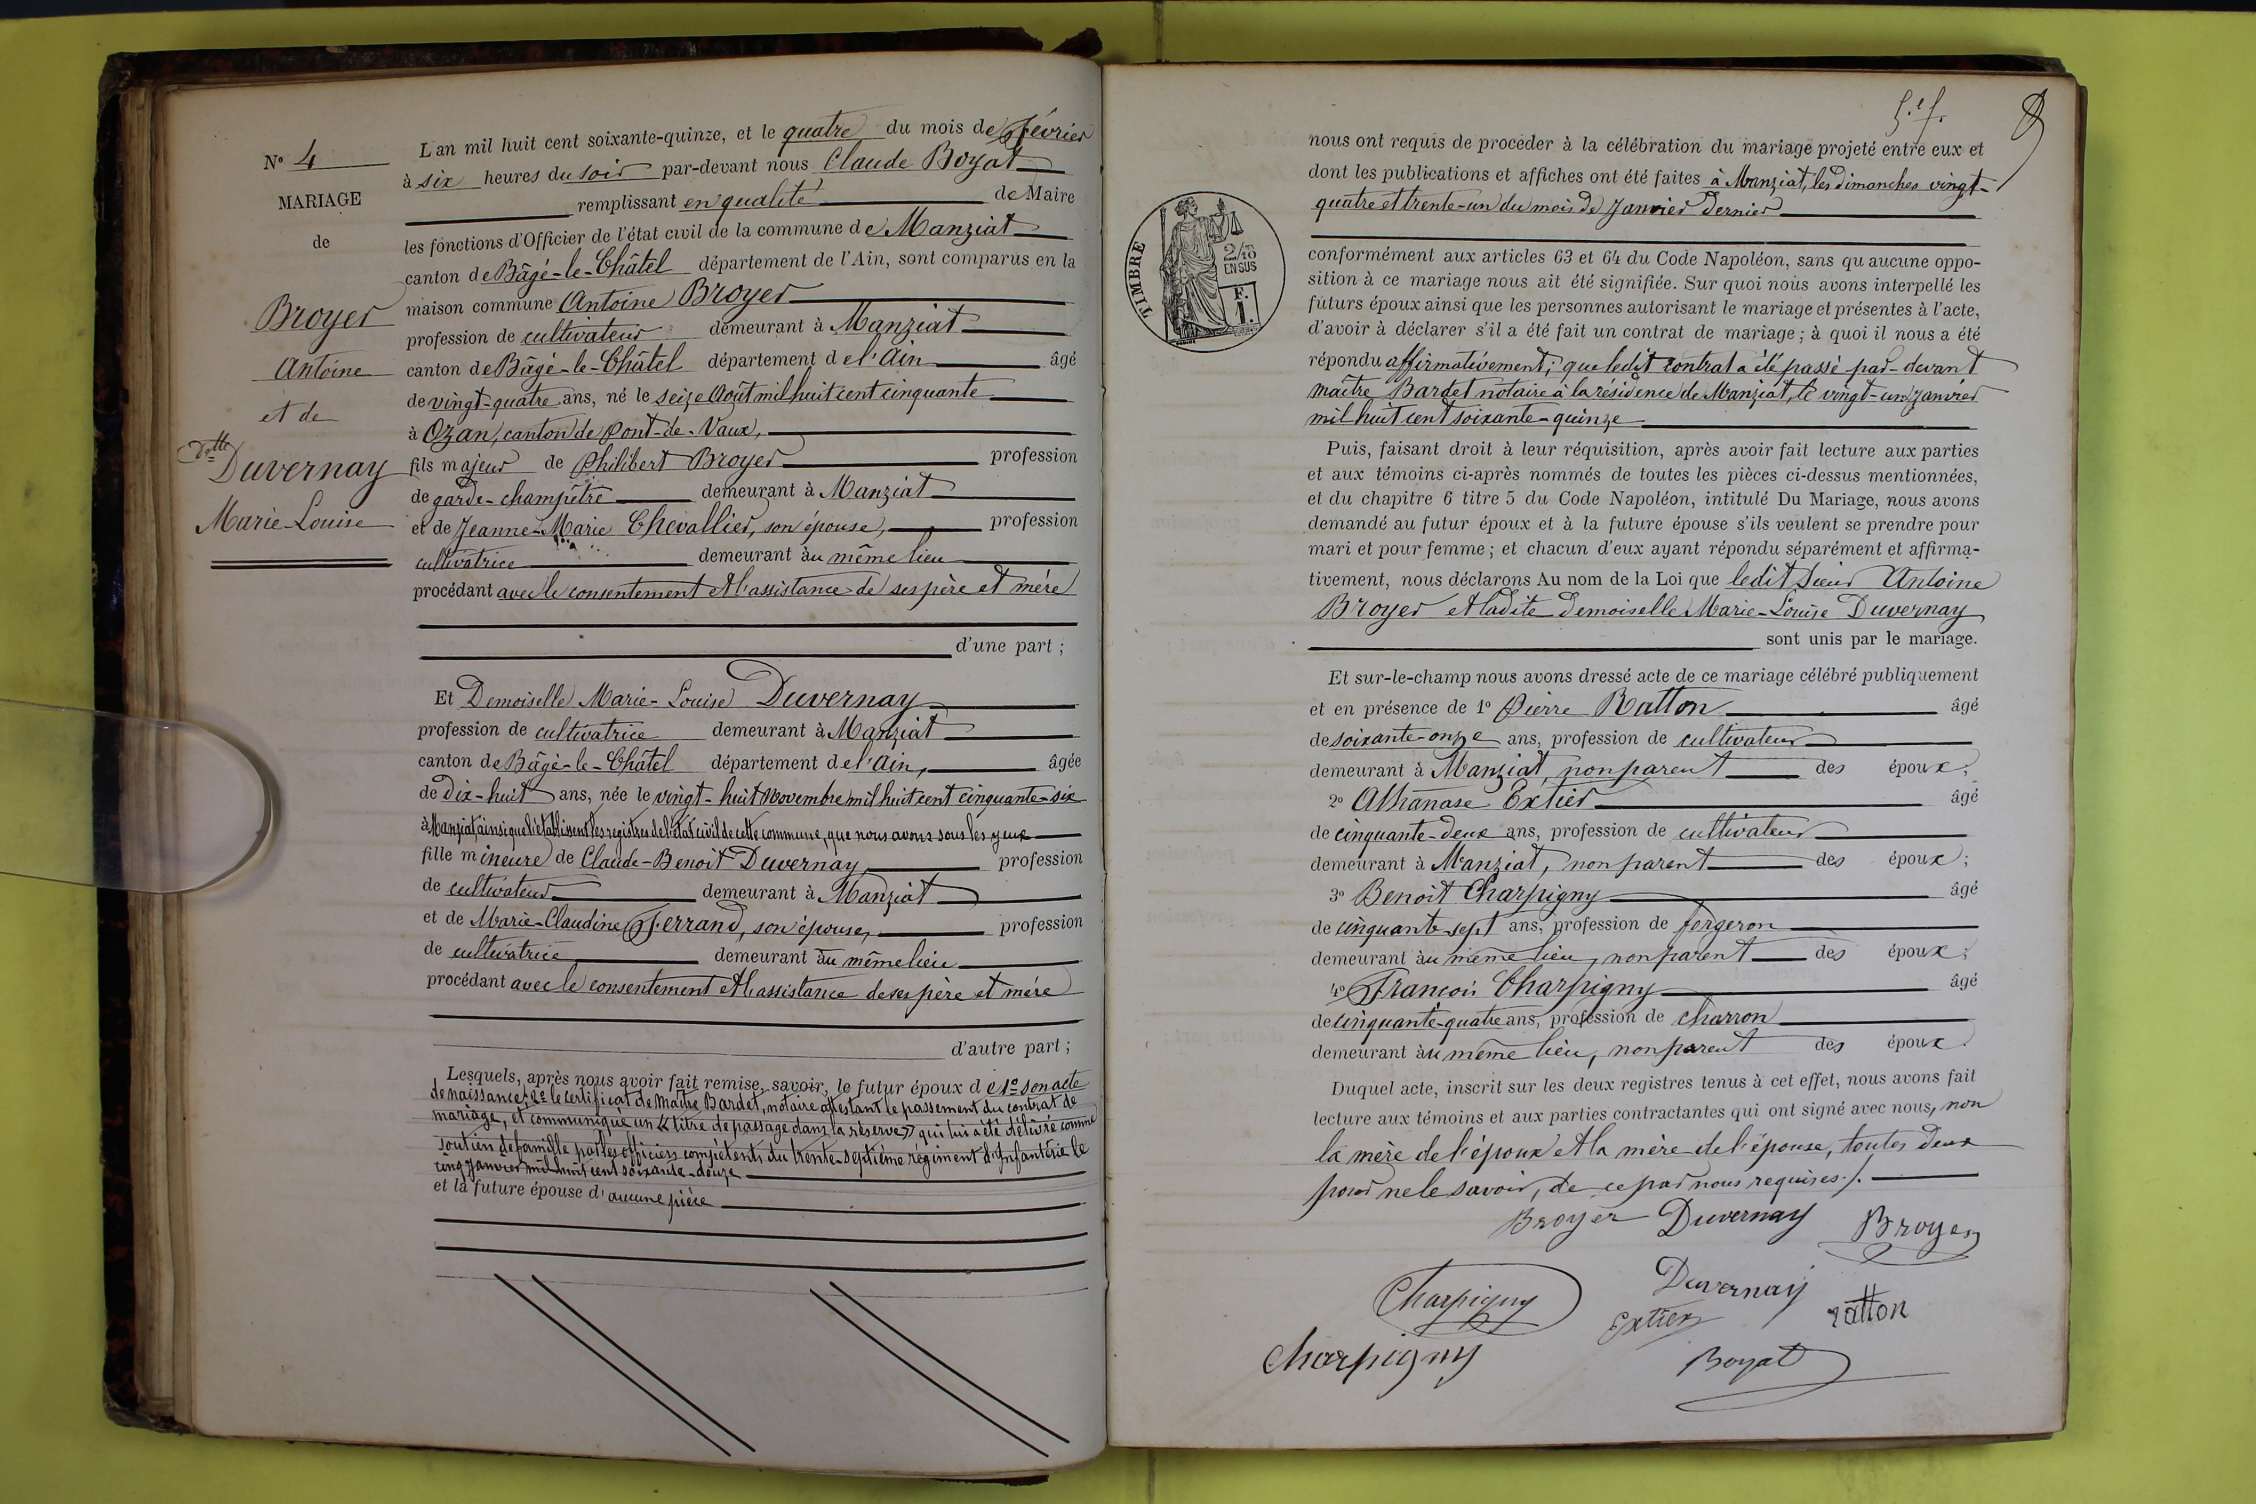 N° 4
MARIAGE
de
Broyer
Antoine
et de
Dlle
Duvernay
Marie-Louise
L'an mil huit cent soixante-quinze, et le quatre du mois de Février
à six heures du soir par-devant nous Claude Boyat
remplissant en qualité de Maire
les fonctions d'Officier de l'état civil de la commune de Manziat
canton de Bâgé-le-Châtel département de l'Ain, sont comparus en la
maison commune Antoine Broyer
profession de cultivateur demeurant à Manziat
canton de Bâgé-le-Châtel département de l'Ain âgé
de vingt-quatre ans, né le seize Août mil huit cent cinquante
à Ozan, canton de Pont-de-Vaux,
fils majeur de Philibert Broyer profession
de garde-champêtre demeurant à Manziat
et de Jeanne-Marie Chevallier, son épouse, profession
cultivatrice demeurant au même lieu
procédant avec le consentement et l'assistance de ses père et mère
d'une part ;
Et Demoiselle Marie-Louise Duvernay
profession de cultivatrice demeurant à Manziat
canton de Bâgé-le-Châtel département de l'Ain, âgée
de dix-huit ans, née le vingt-huit Novembre mil huit cent cinquante-six
à Manziat, ainsi que l'établissent les registres de l'état civil de cette commune, que nous avons sous les yeux
fille mineure de Claude-Benoit Duvernay profession
de cultivateur demeurant à Manziat
et de Marie-Claudine Ferrand, son épouse, profession
de cultivatrice demeurant au même lieu
procédant avec le consentement et l'assistance de ses père et mère
d'autre part ;
Lesquels, après nous avoir fait remise, savoir, le futur époux de 1° son acte
de naissance; 2° le certificat de Maître Bardet, notaire attestant le passement du contrat de
mariage, et communiqué un « titre de passage dans la réserve » qui lui a été délivré comme
soutien de famille par les officiers compétents du trente-septième régiment d'Infantérie le
cinq Janvier mil huit cent soixante-douze
et la future épouse d'aucune pièce
5.e f.
8
TIMBRE
2/10
EN SUS
F.
1.
nous ont requis de procéder à la célébration du mariage projeté entre eux et
dont les publications et affiches ont été faites à Manziat, les dimanches vingt-
quatre et trente-un du mois de Janvier dernier
conformément aux articles 63 et 64 du Code Napoléon, sans qu'aucune oppo-
sition à ce mariage nous ait été signifiée. Sur quoi nous avons interpellé les
futurs époux ainsi que les personnes autorisant le mariage et présentes à l'acte,
d'avoir à déclarer s'il a été fait un contrat de mariage ; à quoi il nous a été
répondu affirmativement; que ledit contrat a été passé par-devant
maître Bardet notaire à la résidence de Manziat, le vingt-un janvier
mil huit cent soixante-quinze
Puis, faisant droit à leur réquisition, après avoir fait lecture aux parties
et aux témoins ci-après nommés de toutes les pièces ci-dessus mentionnées,
et du chapitre 6 titre 5 du Code Napoléon, intitulé Du Mariage, nous avons
demandé au futur époux et à la future épouse s'ils veulent se prendre pour
mari et pour femme ; et chacun d'eux ayant répondu séparément et affirma-
tivement, nous déclarons Au nom de la Loi que ledit Sieur Antoine
Broyer et ladite Demoiselle Marie-Louise Duvernay
sont unis par le mariage.
Et sur-le-champ nous avons dressé acte de ce mariage célébré publiquement
et en présence de 1° Pierre Ratton âgé
de soixante-onze ans, profession de cultivateur
demeurant à Manziat, non parent des époux;
2° Athanase Extier âgé
de cinquante-deux ans, profession de cultivateur
demeurant à Manziat, non parent des époux;
3° Benoit Charpigny âgé
de cinquante-sept ans, profession de forgeron
demeurant au même lieu, non parent des époux;
4° François Charpigny âgé
de cinquante-quatre ans, profession de charron
demeurant au même lieu, non parent des époux.
Duquel acte, inscrit sur les deux registres tenus à cet effet, nous avons fait
lecture aux témoins et aux parties contractantes qui ont signé avec nous, non
la mère de l'époux et la mère de l'épouse, toutes deux
pour ne le savoir, de ce par nous requises./.
Broyer Duvernay Broyer
Charpigny Duvernay
Extier ratton
Charpigny Boyat